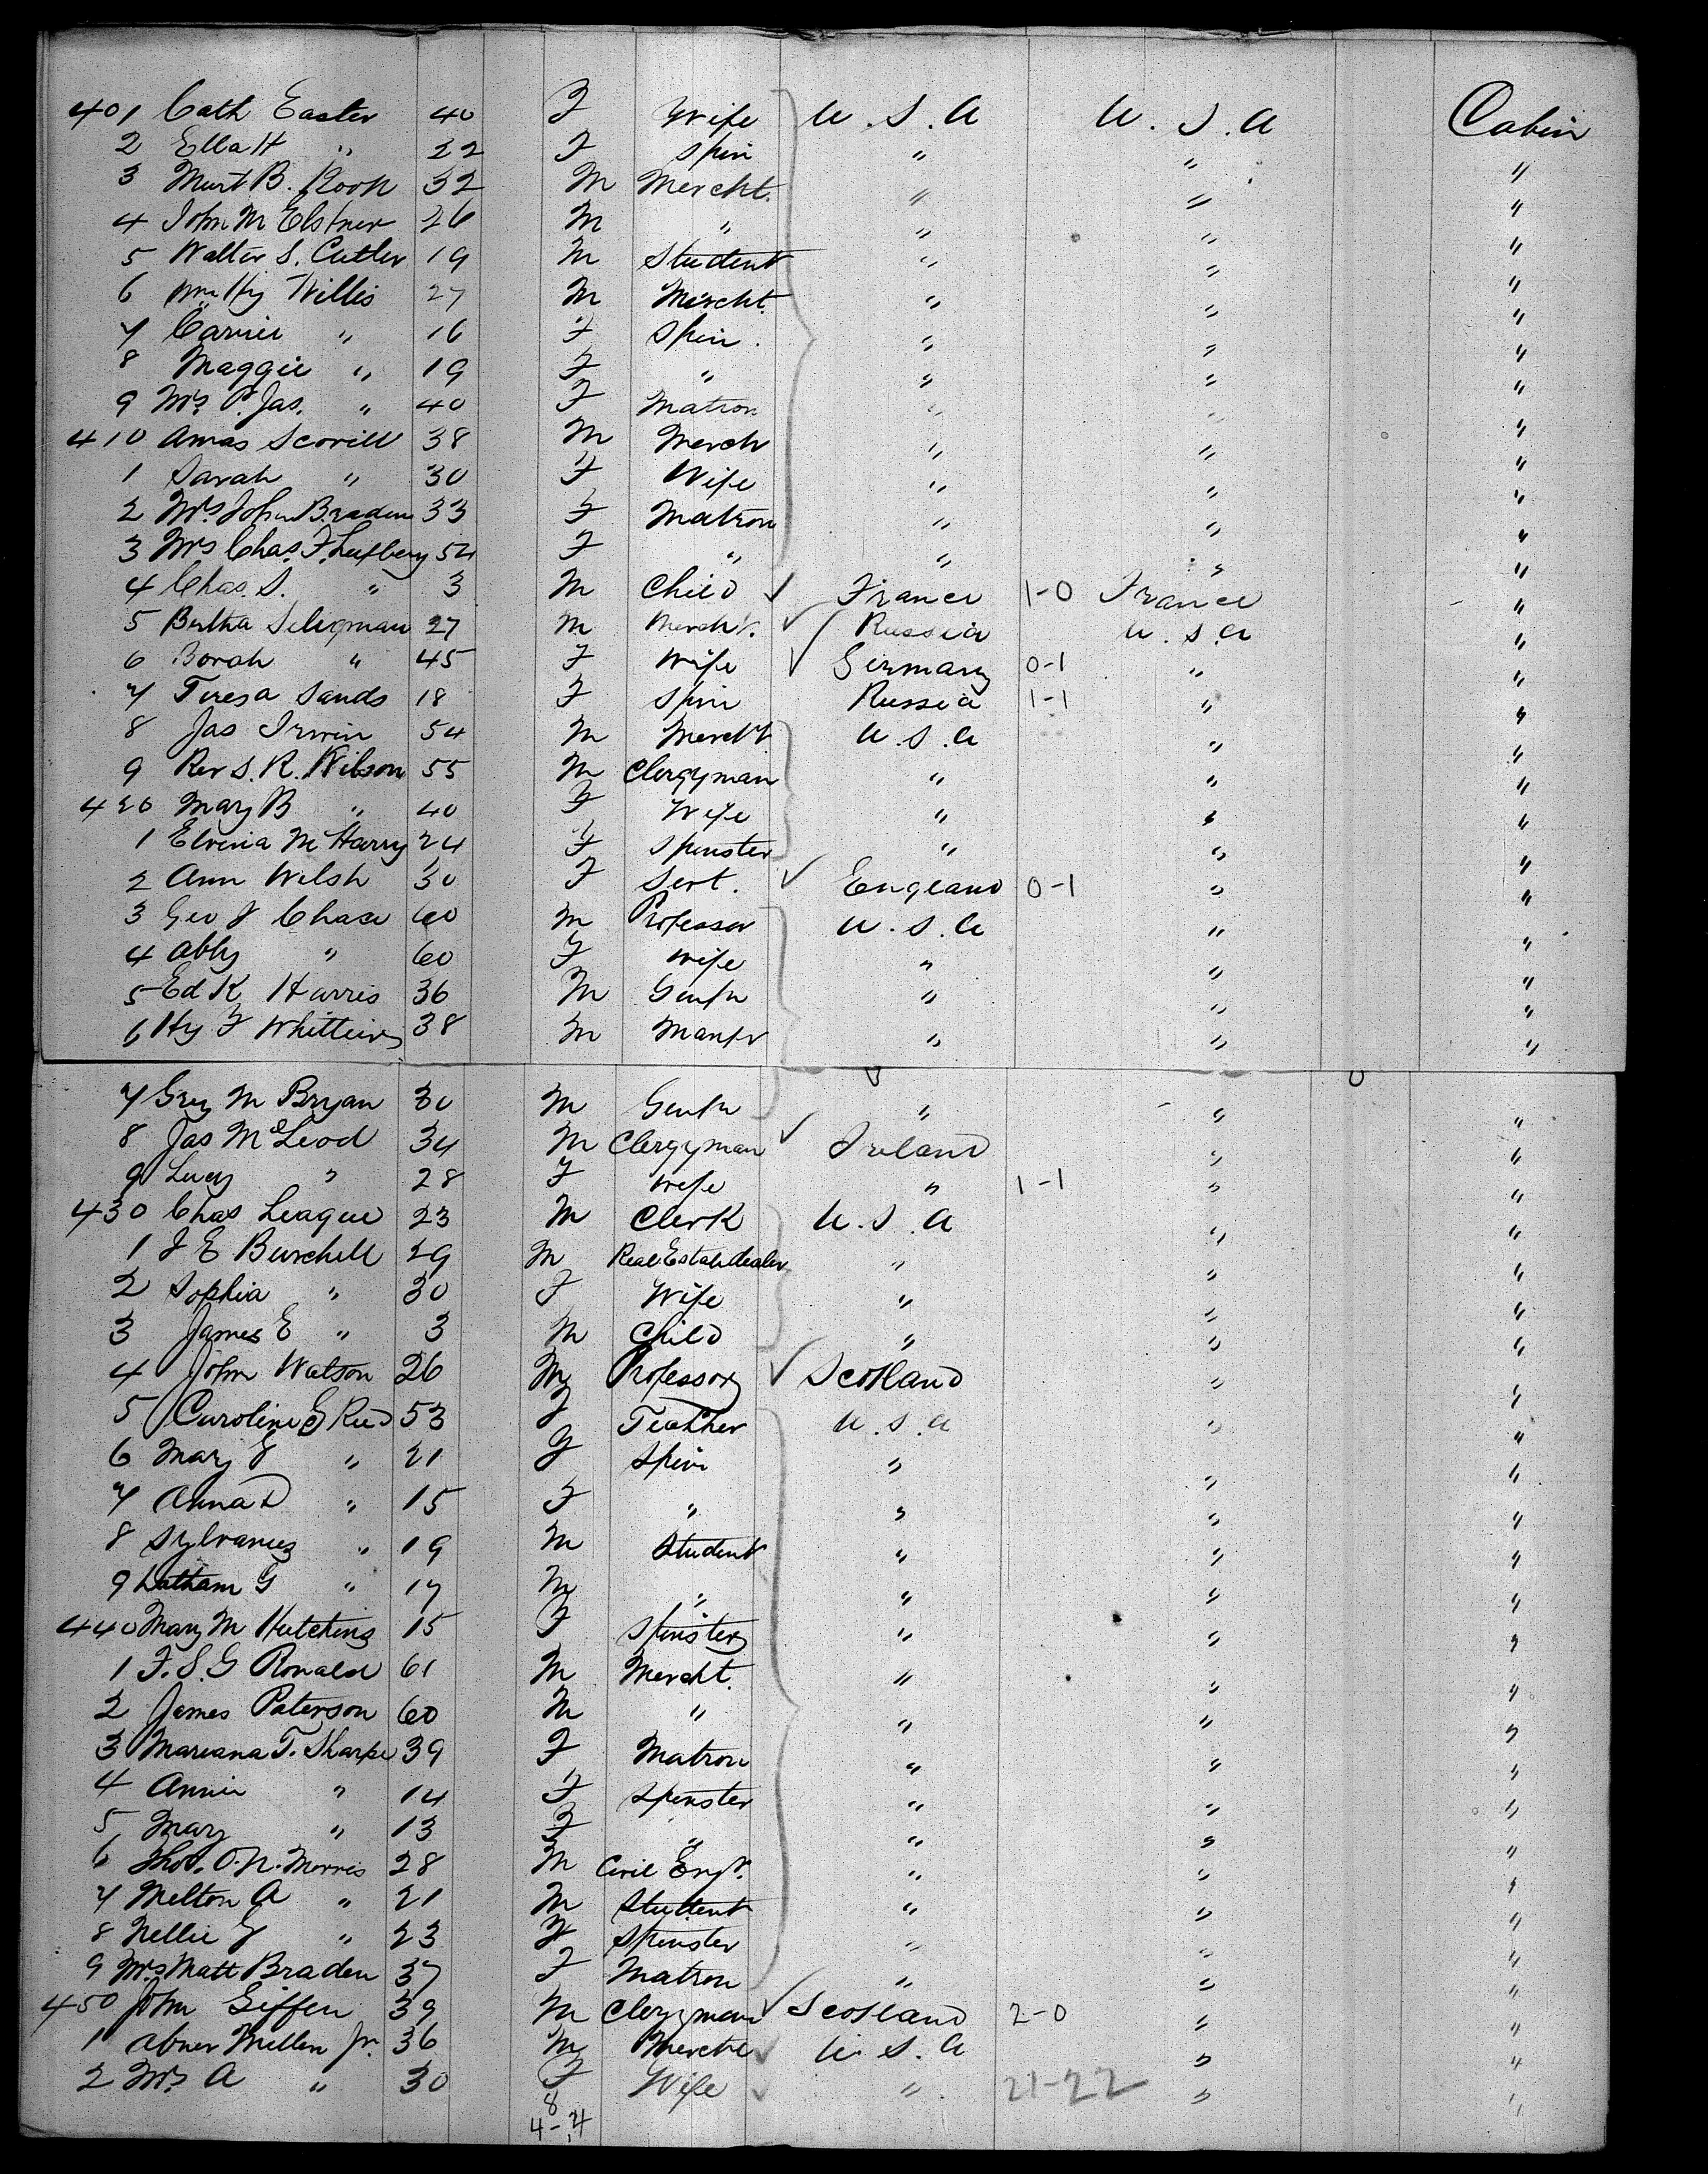 401 Cath Easter 40 F Wife U.S.A U.S.A Cabin
2 Ella H " 22 F Spin " " "
3 Murt B. 32 M Mercht. " " "
4 John M Elstner 26 M " " " "
5 Walter S. Cutler 19 M Student " " "
6 Wm Hy Willis 27 M Mercht. " " "
7 Carrie " 16 F Spin. " " "
8 Maggie " 19 F " " " "
9 Mrs P. Jas. " 40 F Matron " " "
410 Amas Scovill 38 M Merch " " "
1 Sarah " 30 F Wife " " "
2 Mrs John Braden 33 F Matron " " "
3 Mrs Chas. F. Lufbery 54 F " " " "
4 Chas. S. " 3 M Child ✓ France 1-0 France "
5 Bertha Seligman 27 M Mercht. ✓ Russia U.S.A "
6 Borah " 45 F Wife ✓ Germany 0-1 " "
7 Teresa Sands 18 F Spin Russia 1-1 " "
8 Jas Irwin 54 M Mercht U.S.A " "
9 Rev S. R. Wilson 55 M Clergyman " " "
420 Mary B " 40 F Wife " " "
1 Elvina McHarry 24 F Spinster " " "
2 Ann Welsh 30 F Servt. ✓ England 0-1 " "
3 Geo J Chase 60 M Professor U.S.A " "
4 Abby " 60 F Wife " " "
5 Ed K Harris 36 M Gentn " " "
6 Hy F Whittier 38 M Manfr " " "
7 M Bryan 30 M Gentn " " "
8 Jas McLeod 34 M Clergyman ✓ Ireland " "
9 Lucy " 28 F Wife " 1-1 " "
430 Chas League 23 M Clerk U.S.A " "
1 J E Burchell 29 M Real Estate dealer " " "
2 Sophia " 30 F Wife " " "
3 James E " 3 M Child " " "
4 John Watson 26 M Professor ✓ Scotland " "
5 Caroline G Reed 53 F Teacher U.S.A " "
6 Mary G " 21 F Spin " " "
7 Anna D " 15 F " " " "
8 Sylvanus " 19 M Student " " "
9 Latham G " 17 M " " " "
440 Mary M Hutchins 15 F Spinster " " "
1 F. S. G Ronald 61 M Mercht. " " "
2 James Paterson 60 M " " " "
3 Mariana T. Sharpe 39 F Matron " " "
4 Annie " 14 F Spinster " " "
5 Mary " 13 F " " " "
6 Thos. O. N. Morris 28 M Civil Engr. " " "
7 Melton A " 21 M Student " " "
8 Nellie G " 23 F Spinster " " "
9 Mrs Matt Braden 37 F Matron " " "
450 John Giffen 39 M Clergyman ✓ Scotland 2-0 " "
1 Abner Mellen Jr. 36 M Mercht ✓ U.S.A " "
2 Mrs A " 30 F Wife ✓ " 21-22 " "
8
4-4